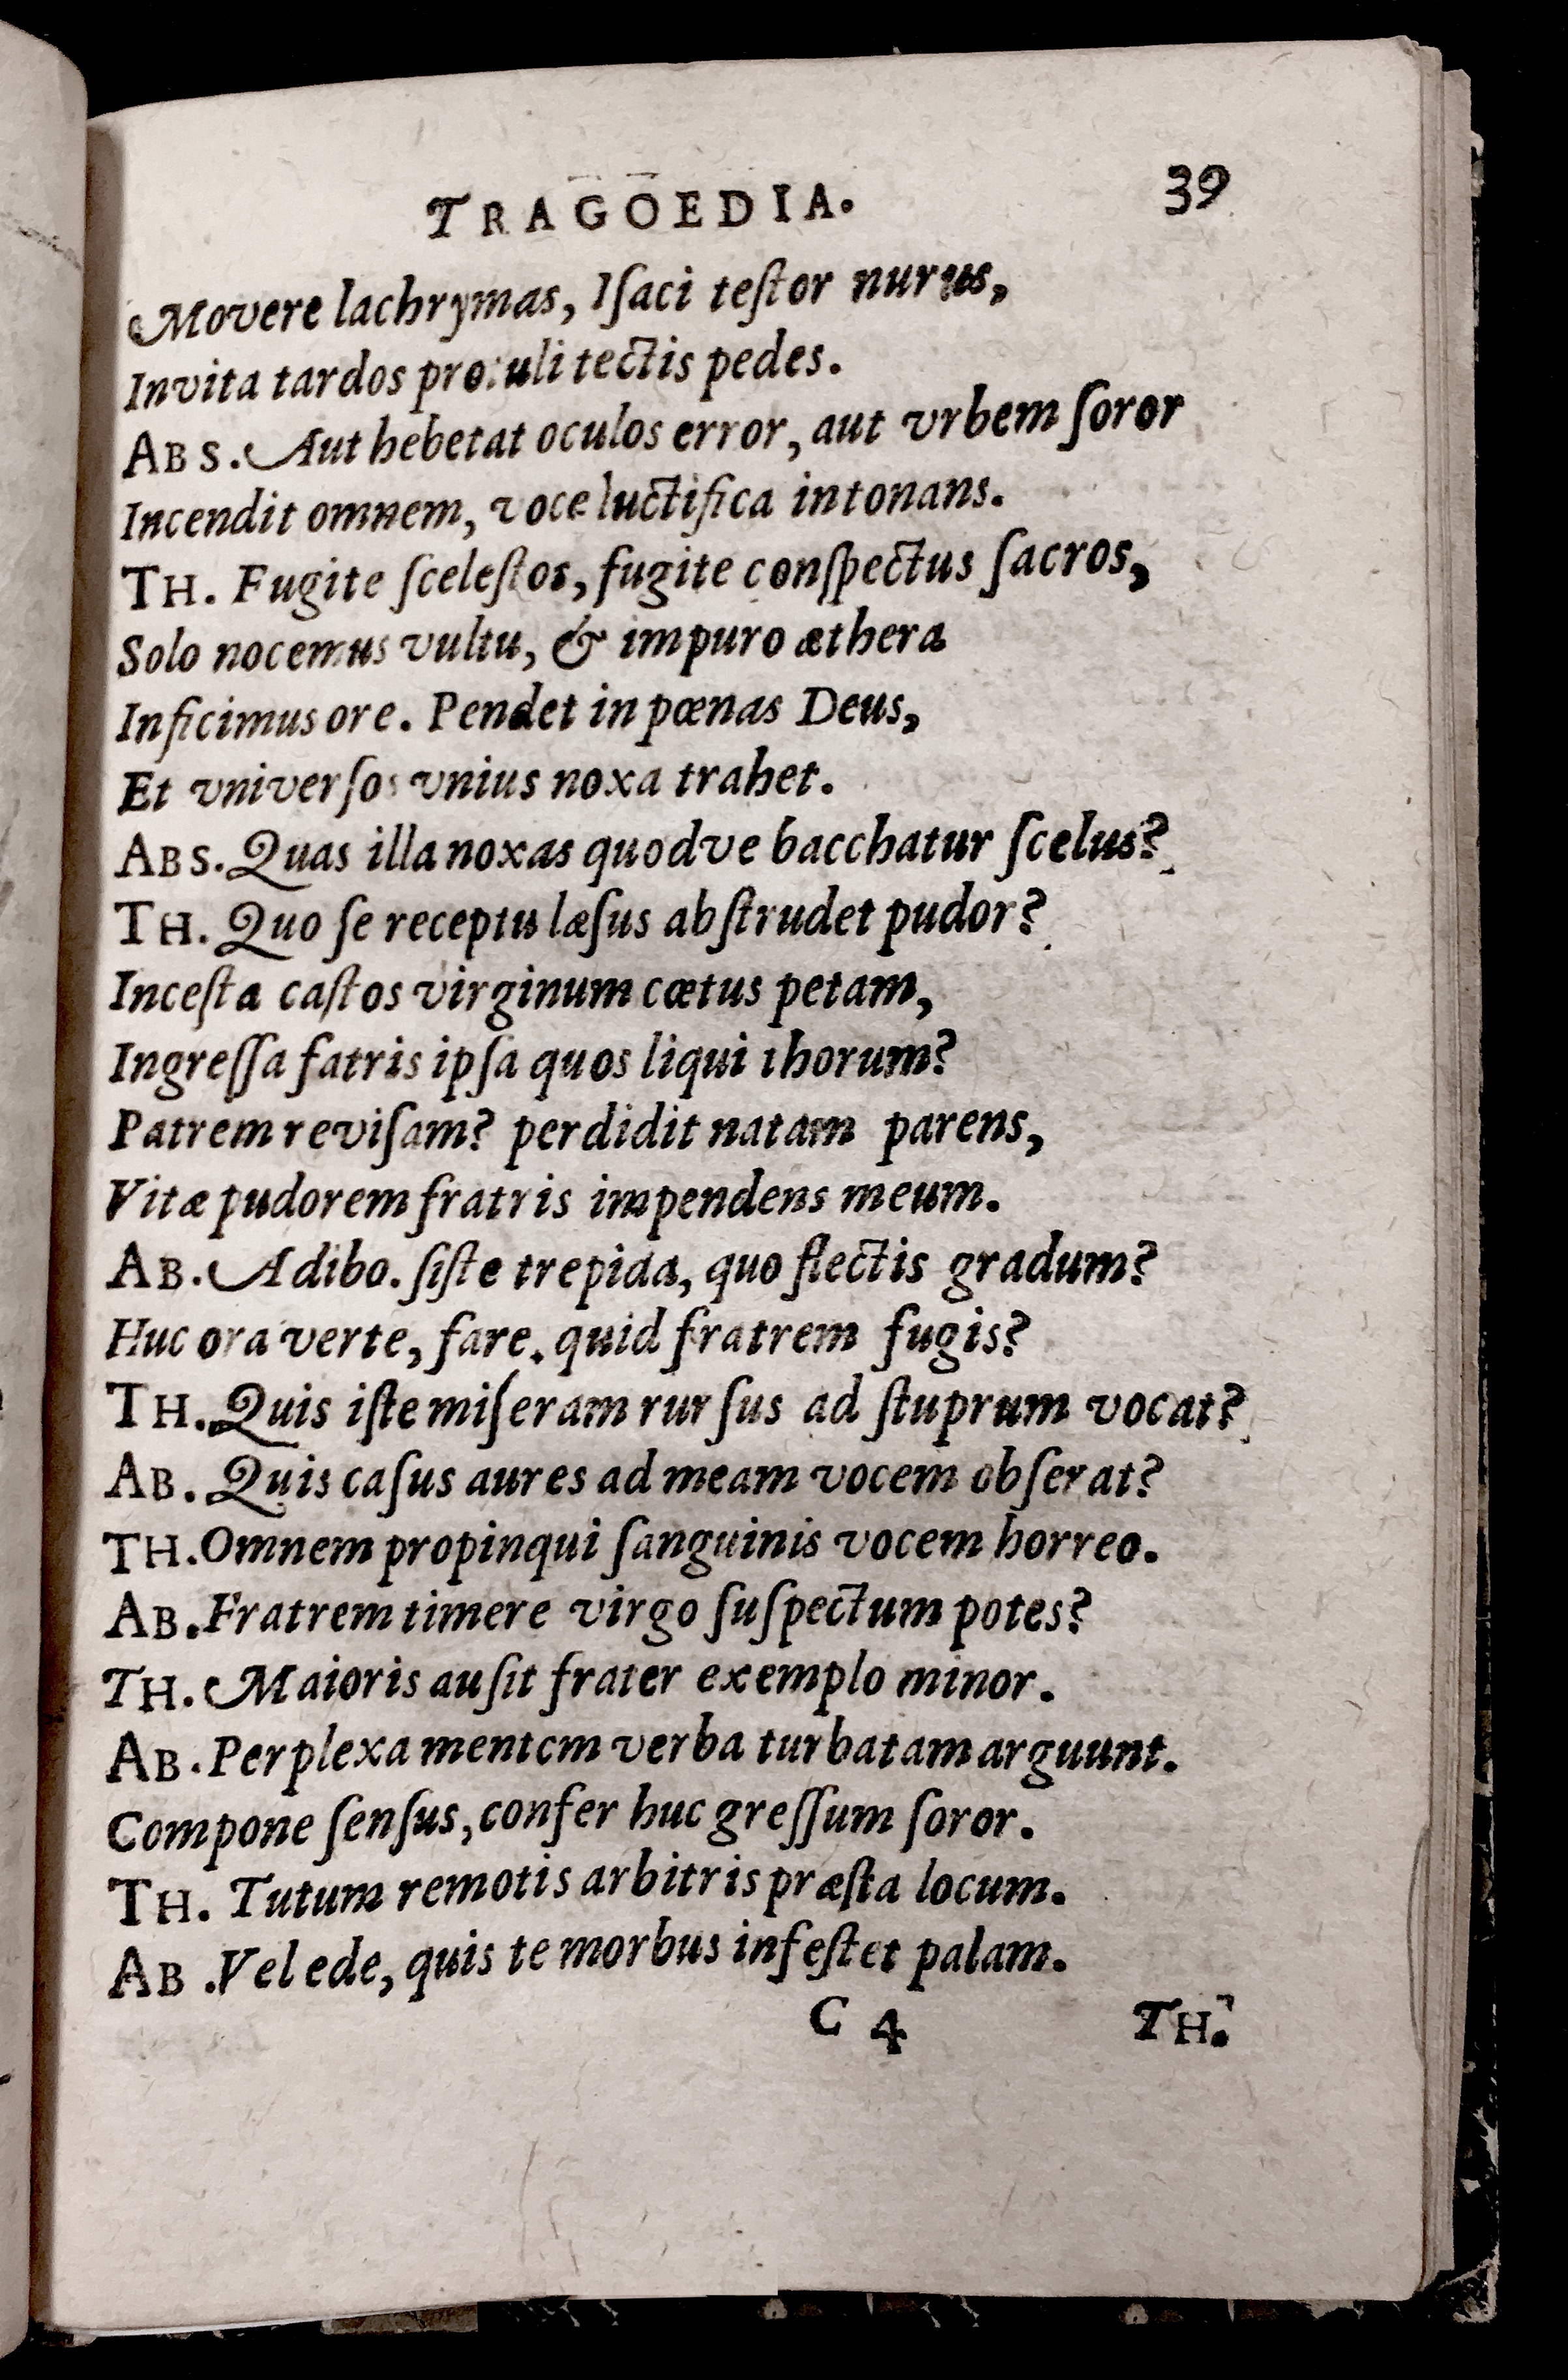 TRAGOEDIA. 39
Movere lachrymas, Iſaci teſtor nurus,
Invita tardos protuli tectis pedes.
ABS. Aut hebetat oculos error, aut vrbem ſoror
Incendit omnem, voce luctifica intonans.
TH. Fugite ſceleſtos, fugite conſpectus ſacros,
Solo nocemus vultu, & impuro æthera
Inficimus ore. Pendet in pœnas Deus,
Et vniverſos vnius noxa trahet.
ABS. Quas illa noxas quodve bacchatur ſcelus?
TH. Quo ſe receptu læſus abſtrudet pudor?
Inceſta caſtos virginum cœtus petam,
Ingreſſa fatris ipſa quos liqui thorum?
Patrem reviſam? perdidit natam parens,
Vitæ pudorem fratris impendens meum.
AB. Adibo. ſiſte trepida, quo flectis gradum?
Huc ora verte, fare. quid fratrem fugis?
TH. Quis iſte miſeram rurſus ad ſtuprum vocat?
AB. Quis caſus aures ad meam vocem obſerat?
TH. Omnem propinqui ſanguinis vocem horreo.
AB. Fratrem timere virgo ſuſpectum potes?
TH. Maioris auſit frater exemplo minor.
AB. Perplexa mentem verba turbatam arguunt.
Compone ſenſus, confer huc greſſum ſoror.
TH. Tutum remotis arbitris præſta locum.
AB. Vel ede, quis te morbus infeſtet palam.
C 4 TH.